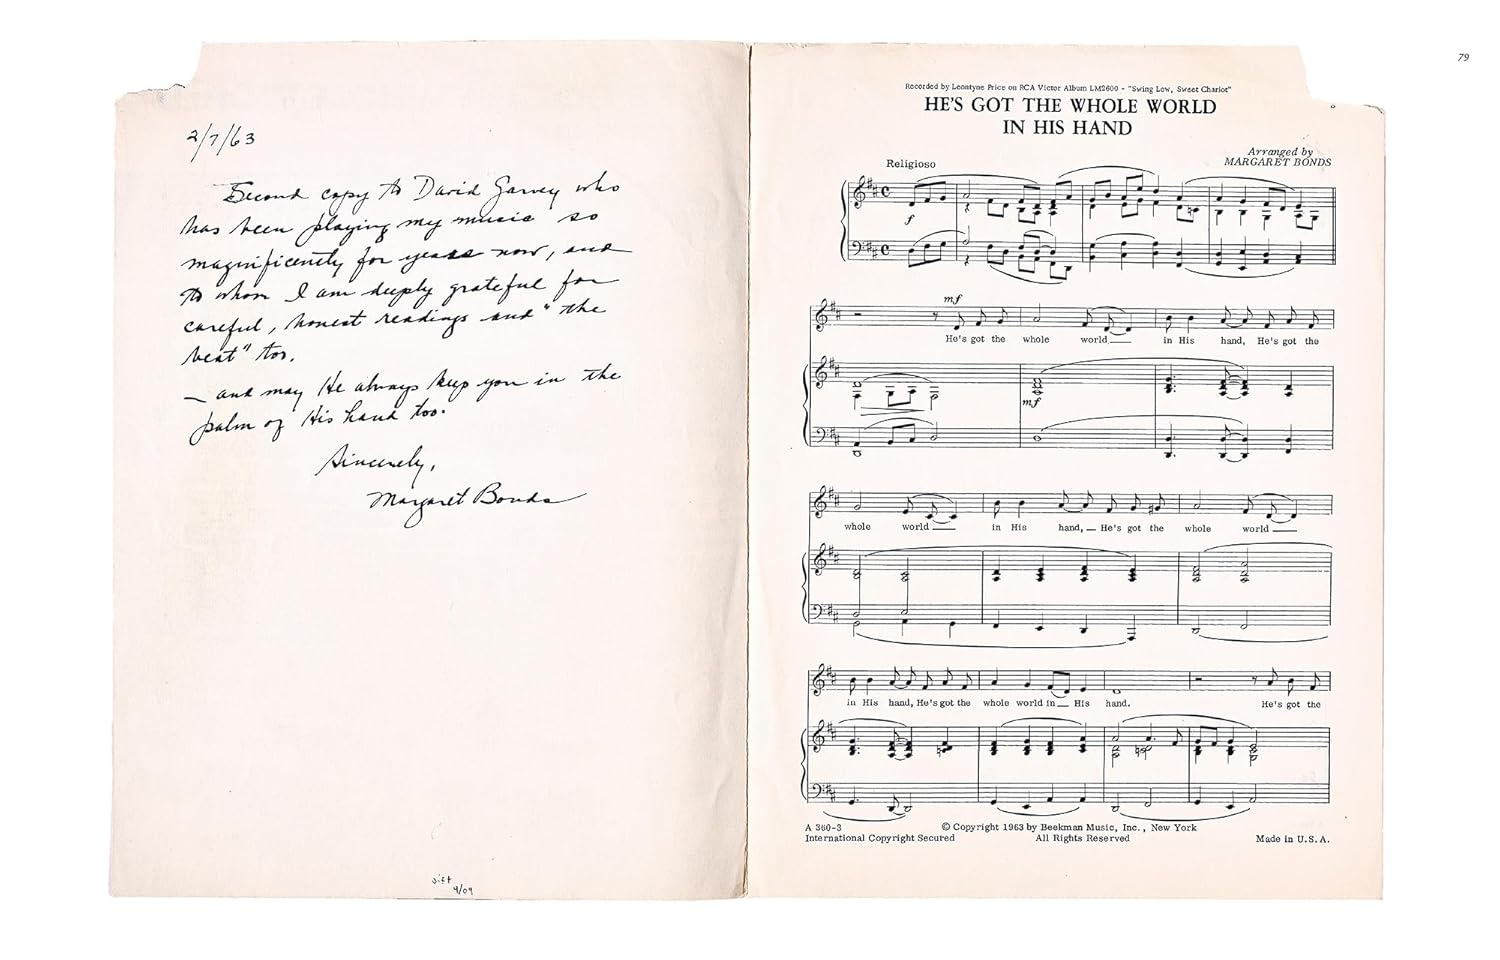 79
2/7/63
Second copy to David Garvey who
has been playing my music so
magnificently for years now, and
to whom I am deeply grateful for
careful, honest readings and "the
beat" too.
— and may He always keep you in the
palm of His hand too.
Sincerely,
Margaret Bonds
gift
4/09
Recorded by Leontyne Price on RCA Victor Album LM2600 - "Swing Low, Sweet Chariot"
HE'S GOT THE WHOLE WORLD
IN HIS HAND
Arranged by
MARGARET BONDS
Religioso
f
mf
He's got the whole world in His hand, He's got the
mf
whole world in His hand, He's got the whole world
in His hand, He's got the whole world in His hand. He's got the
A 360-3
© Copyright 1963 by Beekman Music, Inc., New York
International Copyright Secured All Rights Reserved Made in U.S.A.